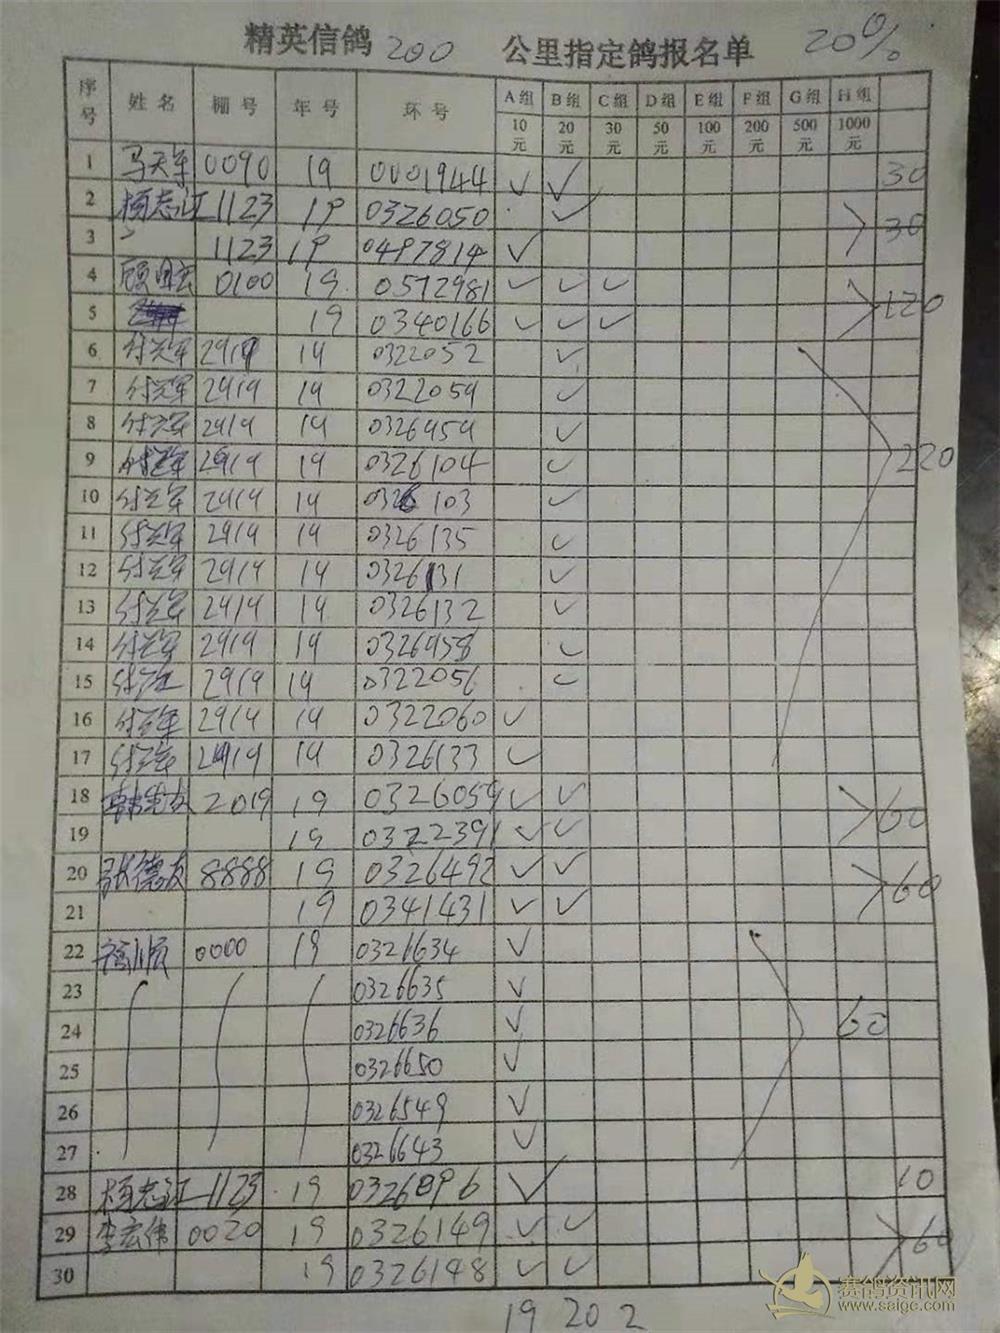 精英信鸽 200 公里指定鸽报名单 20%
序号 姓名 棚号 年号 环号 A组 B组 C组 D组 E组 F组 G组 H组
10元 20元 30元 50元 100元 200元 500元 1000元
1 马天军 0090 19 0001944 ✓ ✓ 30
2 杨志江 1123 19 0326050 ✓
3 1123 19 0497814 ✓ 30
4 顾 0100 19 0572981 ✓ ✓ ✓
5 19 0340166 ✓ ✓ ✓ 120
6 付兰军 2919 19 0322052 ✓
7 付兰军 2919 19 0322059 ✓
8 付兰军 2919 19 0326959 ✓
9 付兰军 2919 19 0326104 ✓ 220
10 付兰军 2919 19 0326103 ✓
11 付兰军 2919 19 0326135 ✓
12 付兰军 2919 19 0326131 ✓
13 付兰军 2919 19 0326132 ✓
14 付兰军 2919 19 0326958 ✓
15 付兰军 2919 19 0322056 ✓
16 付兰军 2919 19 0322060 ✓
17 付兰军 2919 19 0326133 ✓
18 2019 19 0326059 ✓ ✓ 60
19 19 0322391 ✓ ✓
20 张德友 8888 19 0326492 ✓ ✓ 60
21 19 0341431 ✓ ✓
22 福顺 0000 19 0326634 ✓
23 0326635 ✓
24 0326636 ✓ 60
25 0326650 ✓
26 0326549 ✓
27 0326643 ✓
28 杨志江 1123 19 0326896 ✓ 10
29 李宏伟 0020 19 0326149 ✓ ✓ 60
30 19 0326148 ✓ ✓
19 20 2
赛鸽资讯网
www.saige.com